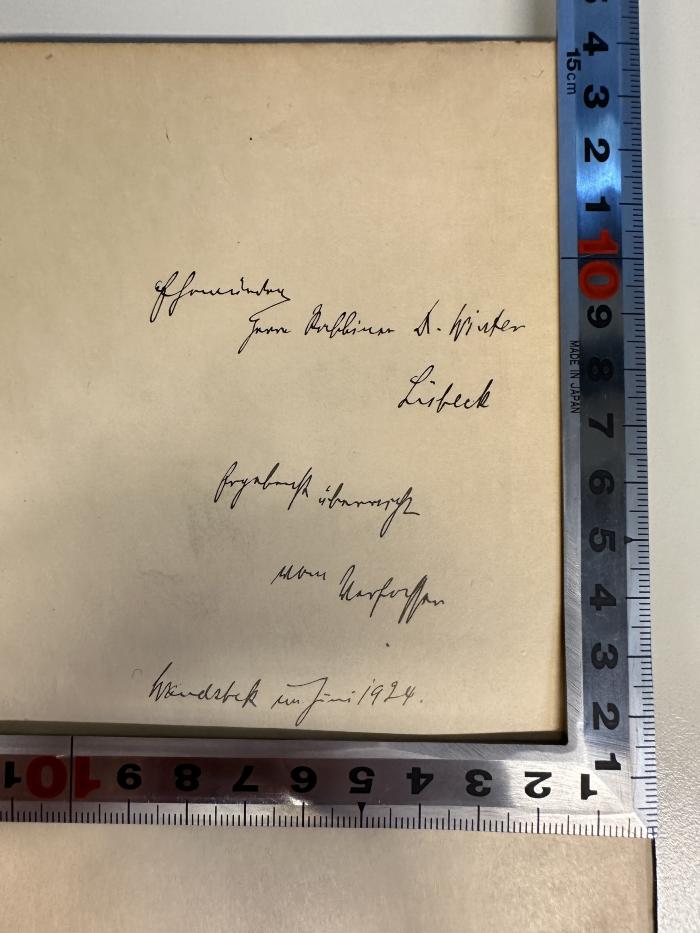 Ehrwürden
Herrn Rabbiner Dr. Winter
Lübeck
Ergebenst überreicht
vom Verfasser
Wandsbek im Juni 1924.
5 4 3 2 1 10 9 8 7 6 5 4 3 2 1
15cm
MADE IN JAPAN
1 10 9 8 7 6 5 4 3 2 1